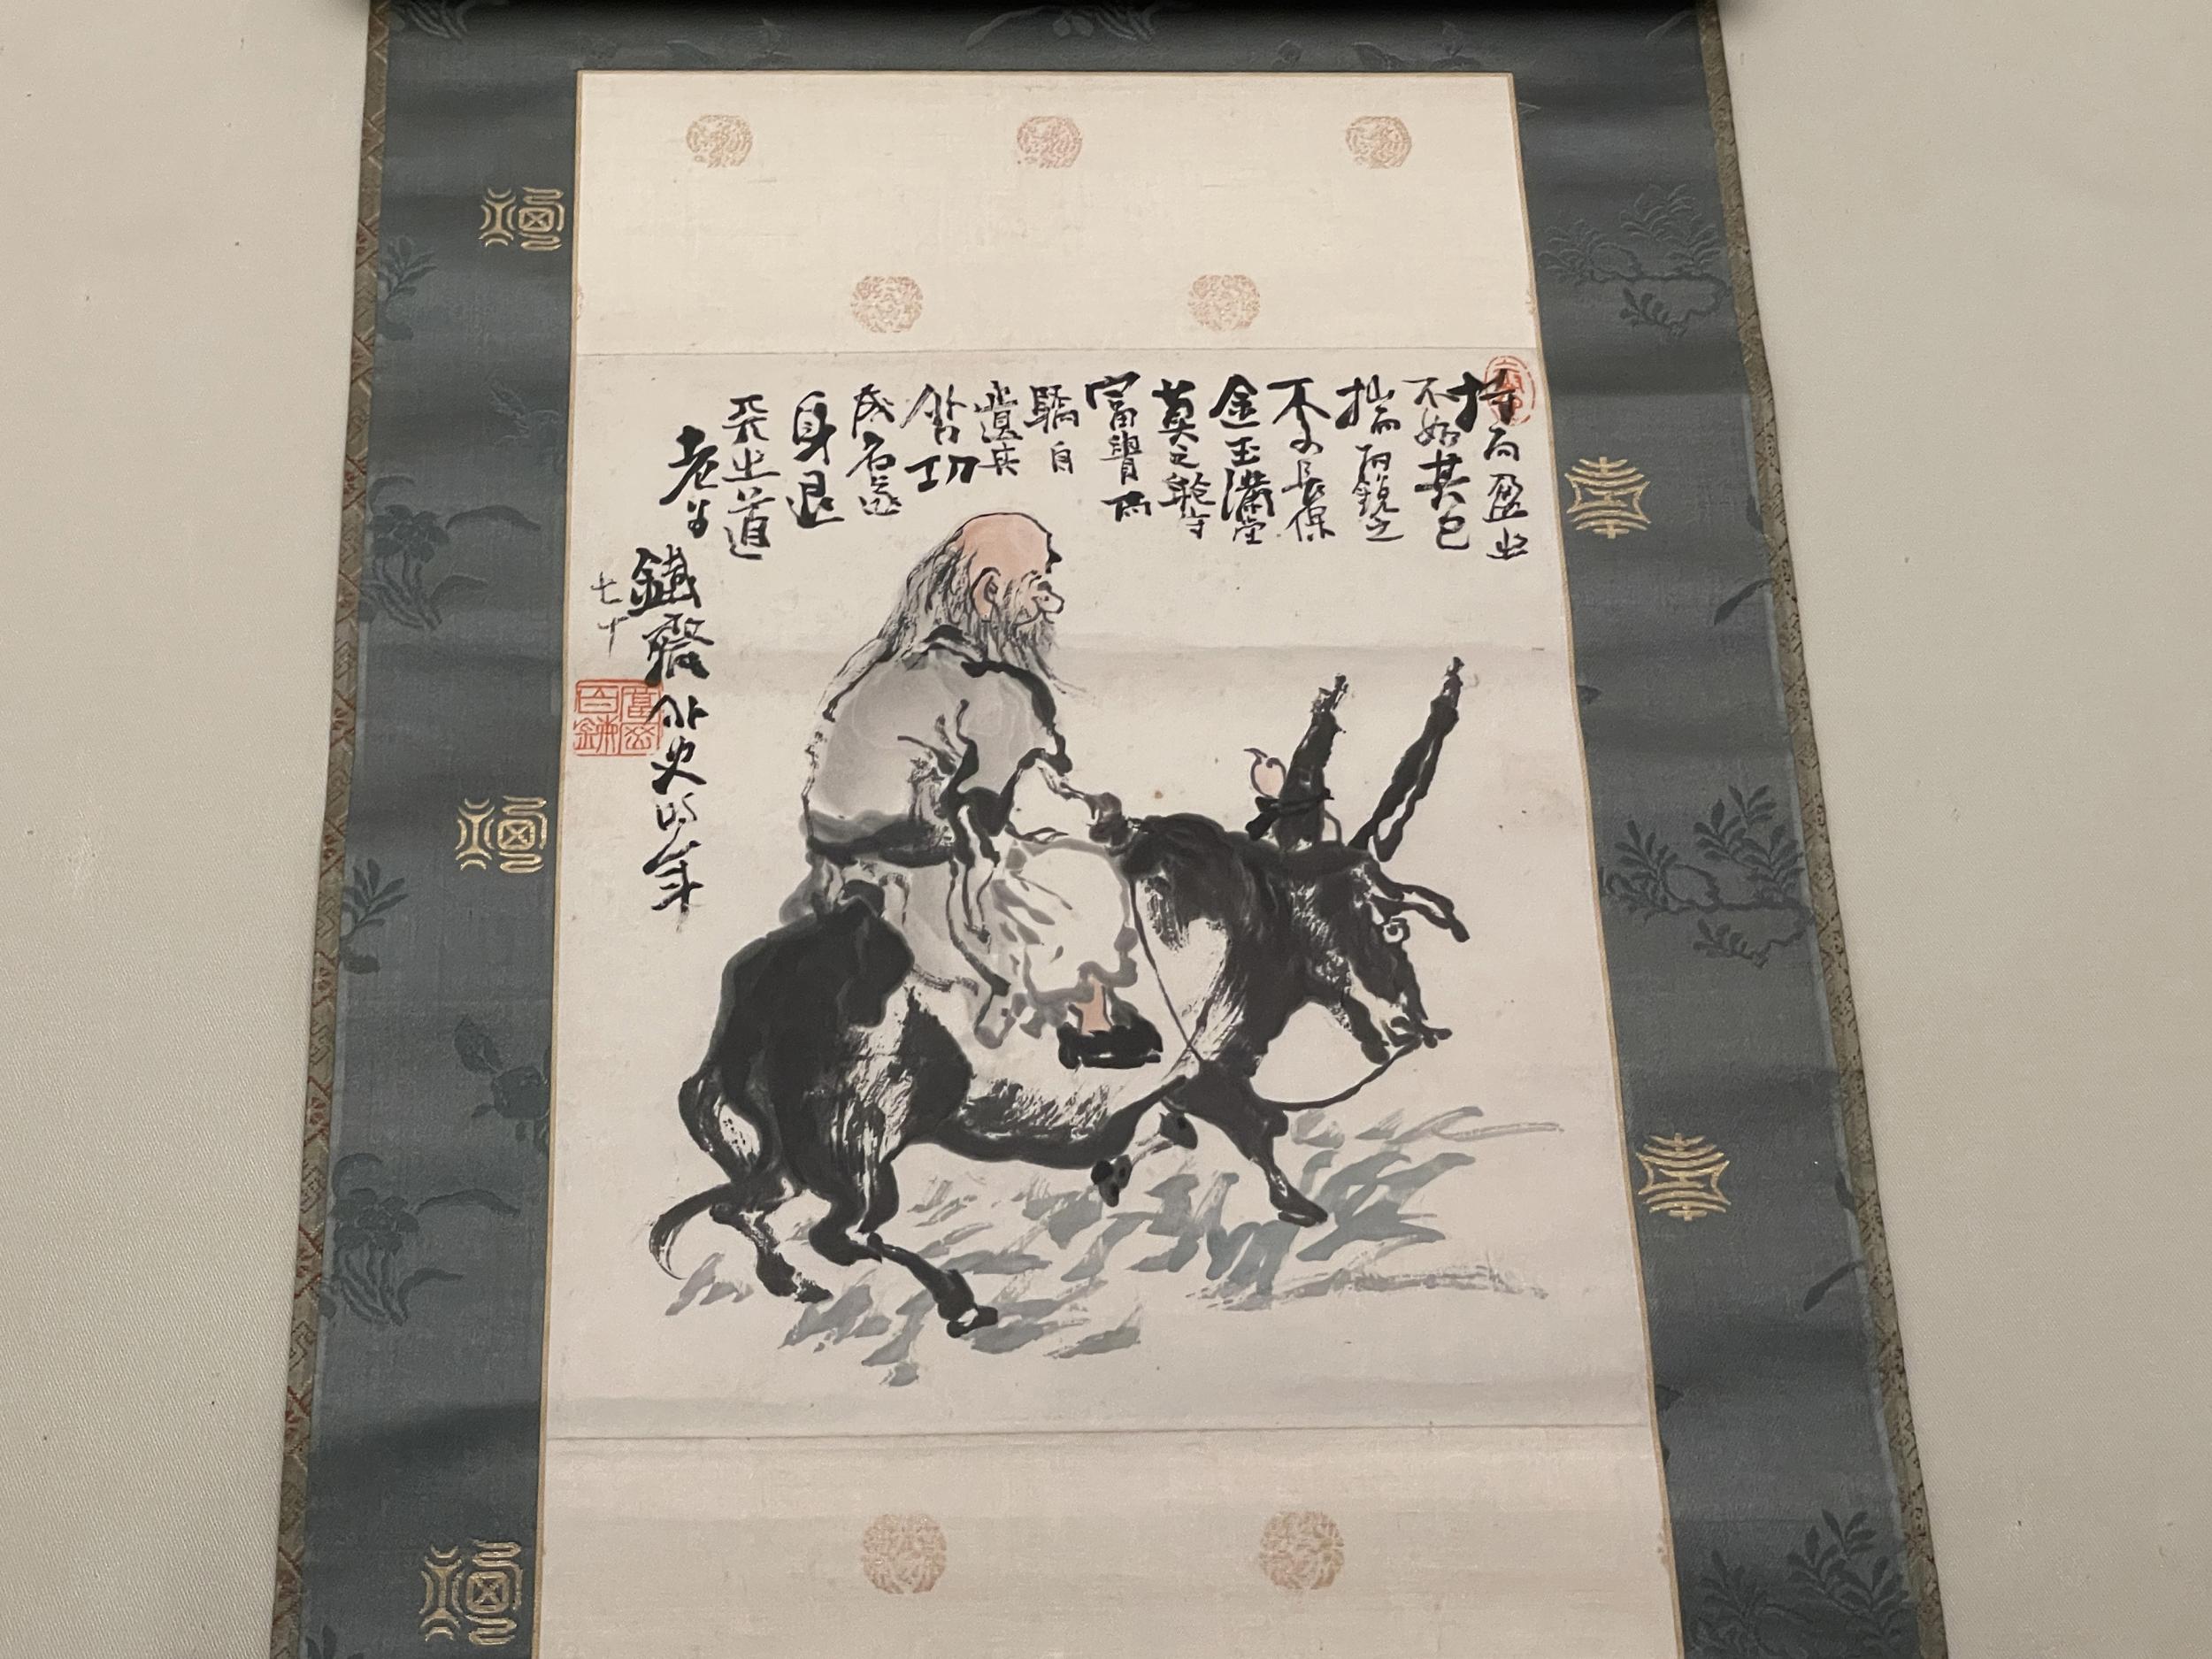 持而盈之
不如其已
揣而銳之
不可長保
金玉滿堂
莫之能守
富貴而
驕自
遺其
咎功
成名遂
身退
天之道
老子
鐵齋外史時年
七十
富岡百錬
福
福
福
壽
壽